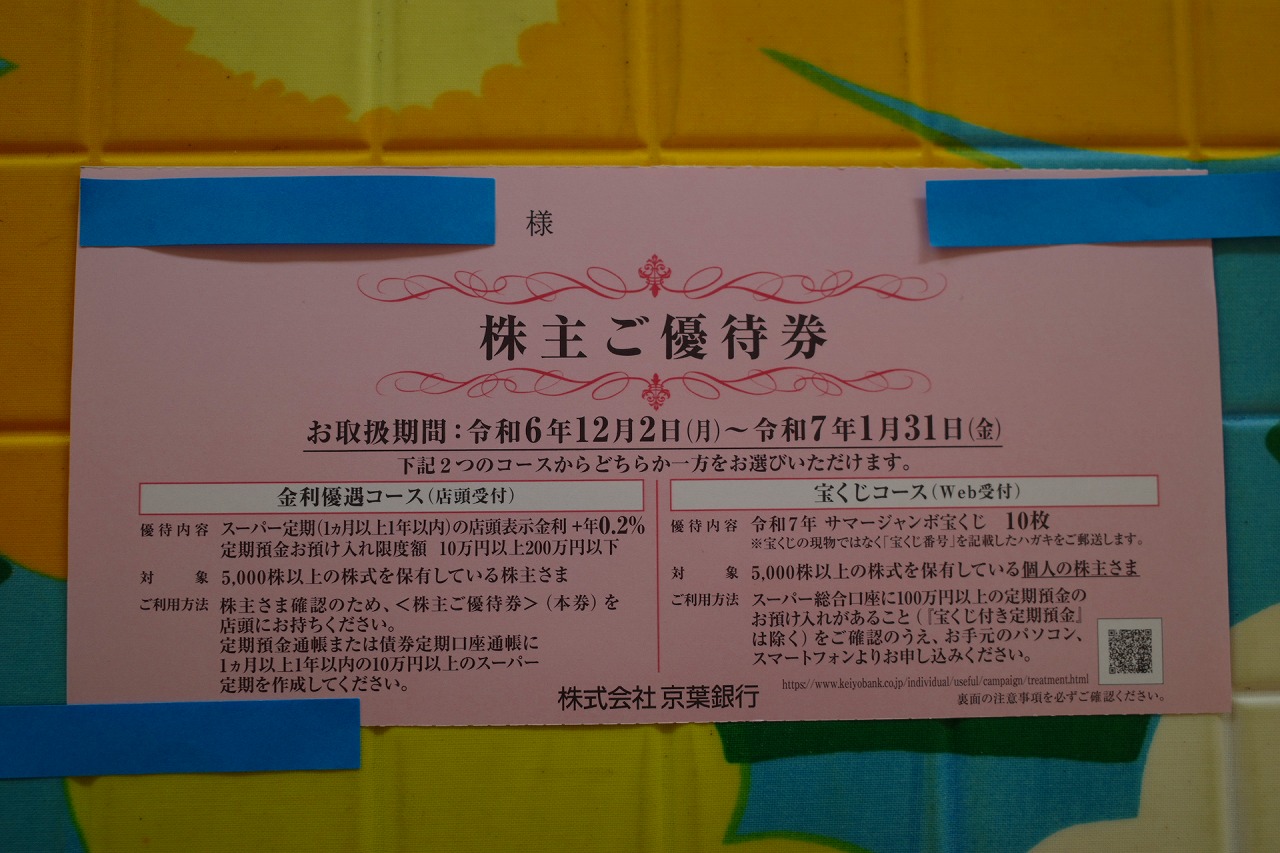 様
株主ご優待券
お取扱期間：令和6年12月2日（月）～令和7年1月31日（金）
下記2つのコースからどちらか一方をお選びいただけます。
金利優遇コース（店頭受付）
優待内容 スーパー定期（1ヵ月以上1年以内）の店頭表示金利＋年0.2%
定期預金お預け入れ限度額 10万円以上200万円以下
対象 5,000株以上の株式を保有している株主さま
ご利用方法 株主さま確認のため、＜株主ご優待券＞（本券）を
店頭にお持ちください。
定期預金通帳または債券定期口座通帳に
1ヵ月以上1年以内の10万円以上のスーパー
定期を作成してください。
宝くじコース（Web受付）
優待内容 令和7年 サマージャンボ宝くじ 10枚
※宝くじの現物ではなく「宝くじ番号」を記載したハガキをご郵送します。
対象 5,000株以上の株式を保有している個人の株主さま
ご利用方法 スーパー総合口座に100万円以上の定期預金の
お預け入れがあること（『宝くじ付き定期預金』
は除く）をご確認のうえ、お手元のパソコン、
スマートフォンよりお申し込みください。
https://www.keiyobank.co.jp/individual/useful/campaign/treatment.html
裏面の注意事項を必ずご確認ください。
株式会社 京葉銀行